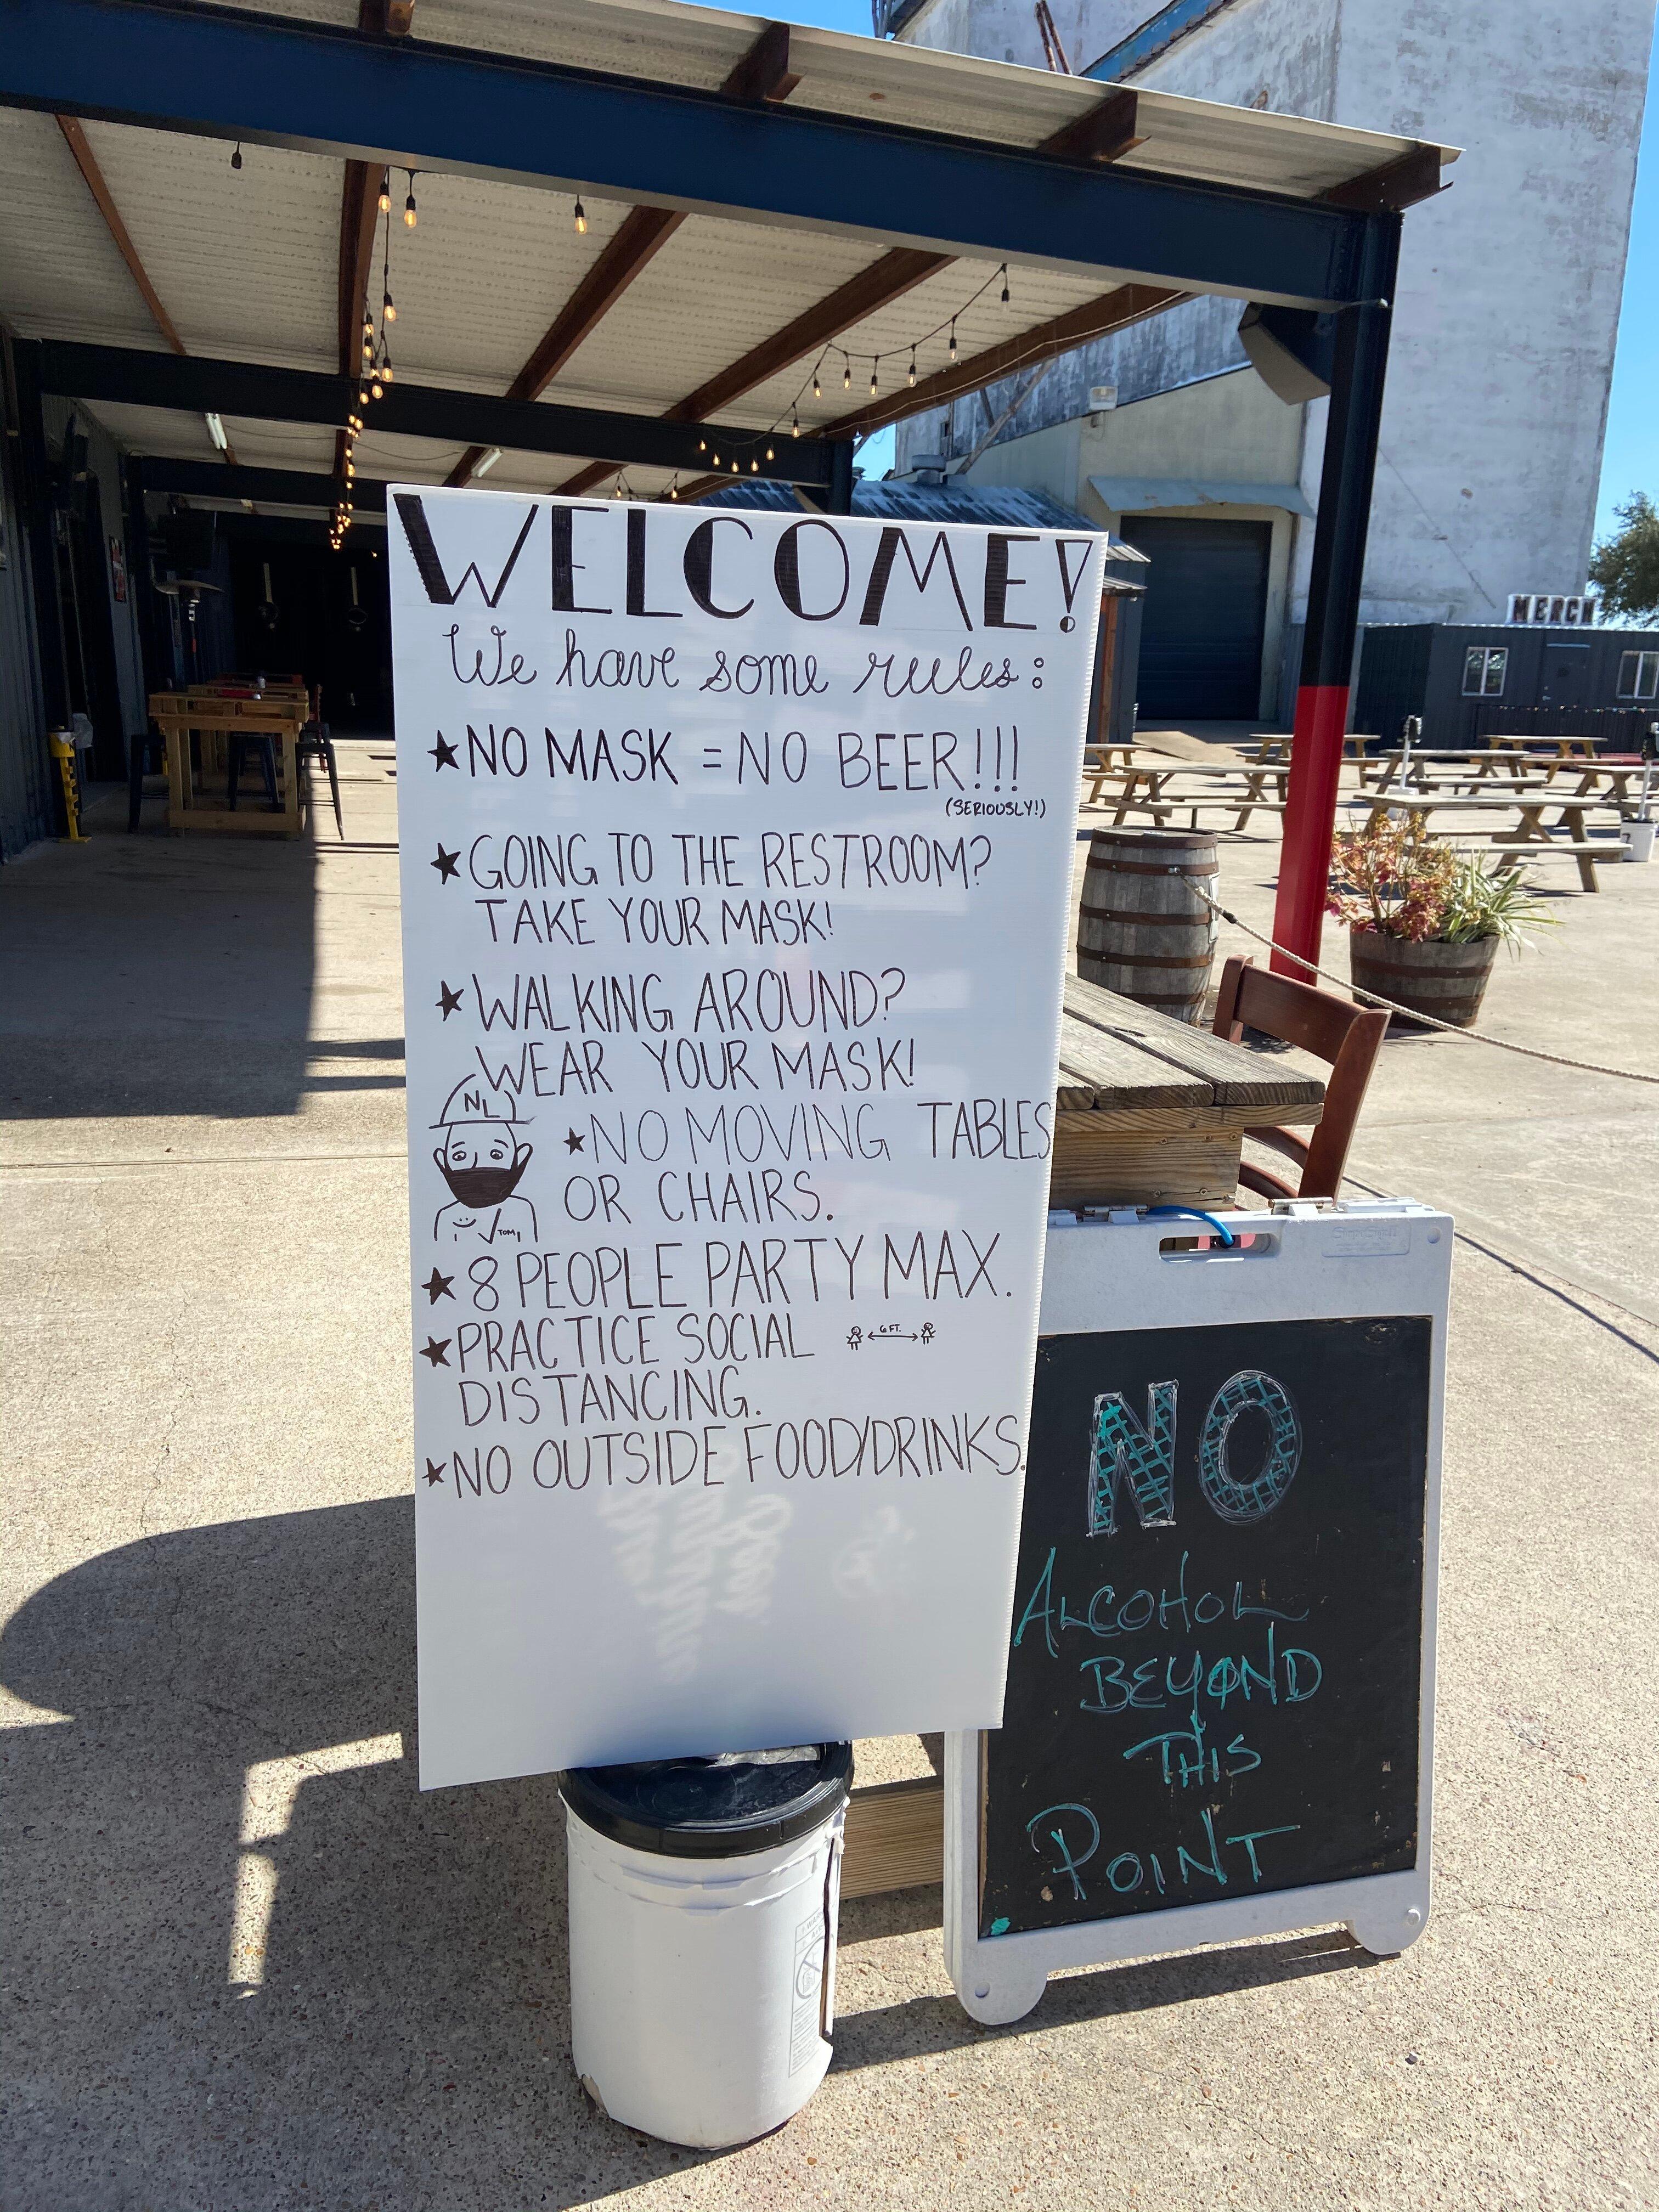 WELCOME!
We have some rules:
★NO MASK = NO BEER!!!
(SERIOUSLY!)
★GOING TO THE RESTROOM?
TAKE YOUR MASK!
★WALKING AROUND?
WEAR YOUR MASK!
NL
★NO MOVING TABLES
OR CHAIRS.
TOM
★8 PEOPLE PARTY MAX.
★PRACTICE SOCIAL
6 FT.
DISTANCING.
★NO OUTSIDE FOOD/DRINKS.
MERCH
NO
ALCOHOL
BEYOND
THIS
POINT